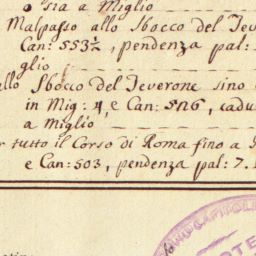 o sia a Miglio
Malpasso allo Sbocco del Teverone
Can: 553½, pendenza pal:
glio
allo Sbocco del Teverone sino
in Mig: 4, e Can: 526, cadu
a Miglio
r tutto il Corso di Roma fino a
e Can: 503, pendenza pal: 7.